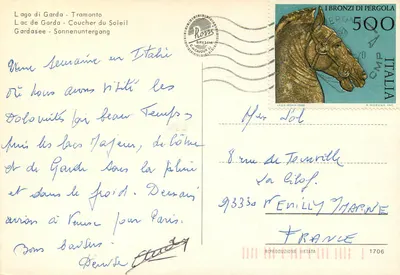 Lago di Garda - Tramonto
Lac de Garda - Coucher du Soleil
Gardasee - Sonnenuntergang
I BRONZI DI PERGOLA
500
ITALIA
Une semaine en Italie
où nous avons visité les
Dolomites par beau temps
puis les lacs Majeur, de Côme
et de Garde sous la pluie
et dans le froid. Demain
avion à Venise pour Paris.
Bons baisers.
Denise
8 rue de
93330 NEUILLY/MARNE
FRANCE
1706